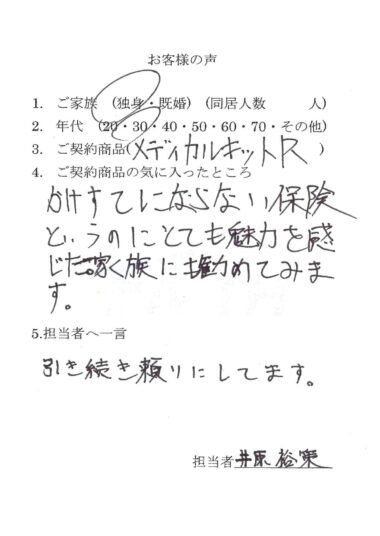 お客様の声
1. ご家族 (独身・既婚) (同居人数 人)
2. 年代 (20・30・40・50・60・70・その他)
3. ご契約商品(メディカルキットR )
4. ご契約商品の気に入ったところ
かけすてにならない保険
というのにとても魅力を感
じた。家族にも勧めてみま
す。
5.担当者へ一言
引き続き頼りにしてます。
担当者 井原 裕